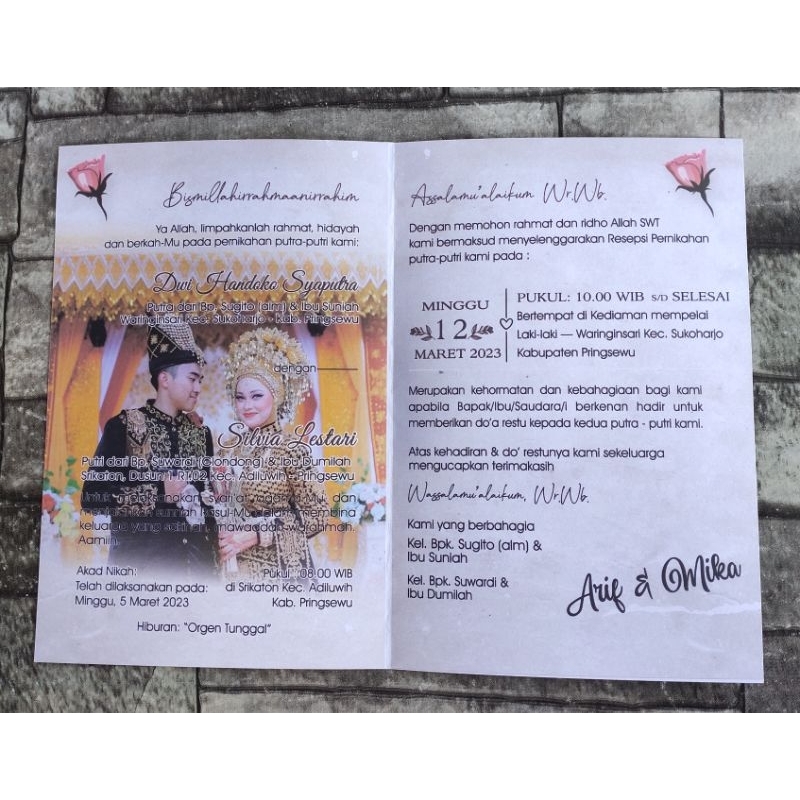 Bismillahirrahmaanirrahim
Ya Allah, limpahkanlah rahmat, hidayah
dan berkah-Mu pada pernikahan putra-putri kami:
Dwi Handoko Syaputra
Putra dari Bp. Sugito (alm) & Ibu Suniah
Waringinsari Kec. Sukoharjo - Kab. Pringsewu
dengan
Silvia Lestari
Putri dari Bp. Suwardi (Glondong) & Ibu Dumilah
Srikaton, Dusun 1 RT.02 Kec. Adiluwih - Pringsewu
Untuk melaksanakan syari'at agama-Mu dan
sunnah Rosul-Mu membina
keluarga yang sakinah, mawaddah warahmah.
Aamiin
Akad Nikah: Pukul : 08.00 WIB
Telah dilaksanakan pada: di Srikaton Kec. Adiluwih
Minggu, 5 Maret 2023 Kab. Pringsewu
Hiburan: "Orgen Tunggal"
Assalamu'alaikum Wr.Wb.
Dengan memohon rahmat dan ridho Allah SWT
kami bermaksud menyelenggarakan Resepsi Pernikahan
putra-putri kami pada :
MINGGU
12
MARET 2023
PUKUL: 10.00 WIB S/D SELESAI
Bertempat di Kediaman mempelai
Laki-laki — Waringinsari Kec. Sukoharjo
Kabupaten Pringsewu
Merupakan kehormatan dan kebahagiaan bagi kami
apabila Bapak/Ibu/Saudara/i berkenan hadir untuk
memberikan do'a restu kepada kedua putra - putri kami.
Atas kehadiran & do' restunya kami sekeluarga
mengucapkan terimakasih
Wassalamu'alaikum, Wr.Wb.
Kami yang berbahagia
Kel. Bpk. Sugito (alm) &
Ibu Suniah
Kel. Bpk. Suwardi &
Ibu Dumilah
Arif & Mika